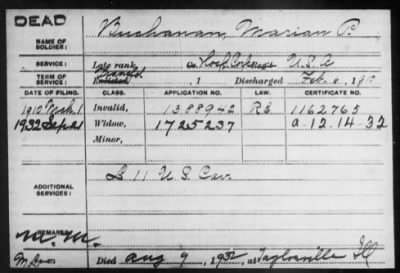 DEAD
NAME OF SOLDIER: Buchanan, Marian P.
SERVICE: Late rank, Co. Hosp. Corps U.S.A
TERM OF SERVICE: Enlisted , 1 Discharged Feb. , 191
DATE OF FILING. CLASS. APPLICATION NO. LAW. CERTIFICATE NO.
1910 Mch 1 Invalid, 1388942 R.S. 1162765
1932 Sep 21 Widow, 1725237 a-12-14-32
Minor,
ADDITIONAL SERVICES: L 11 U.S. Cav.
REMARKS:
Died Aug 9, 1932, at Taylorville Ill